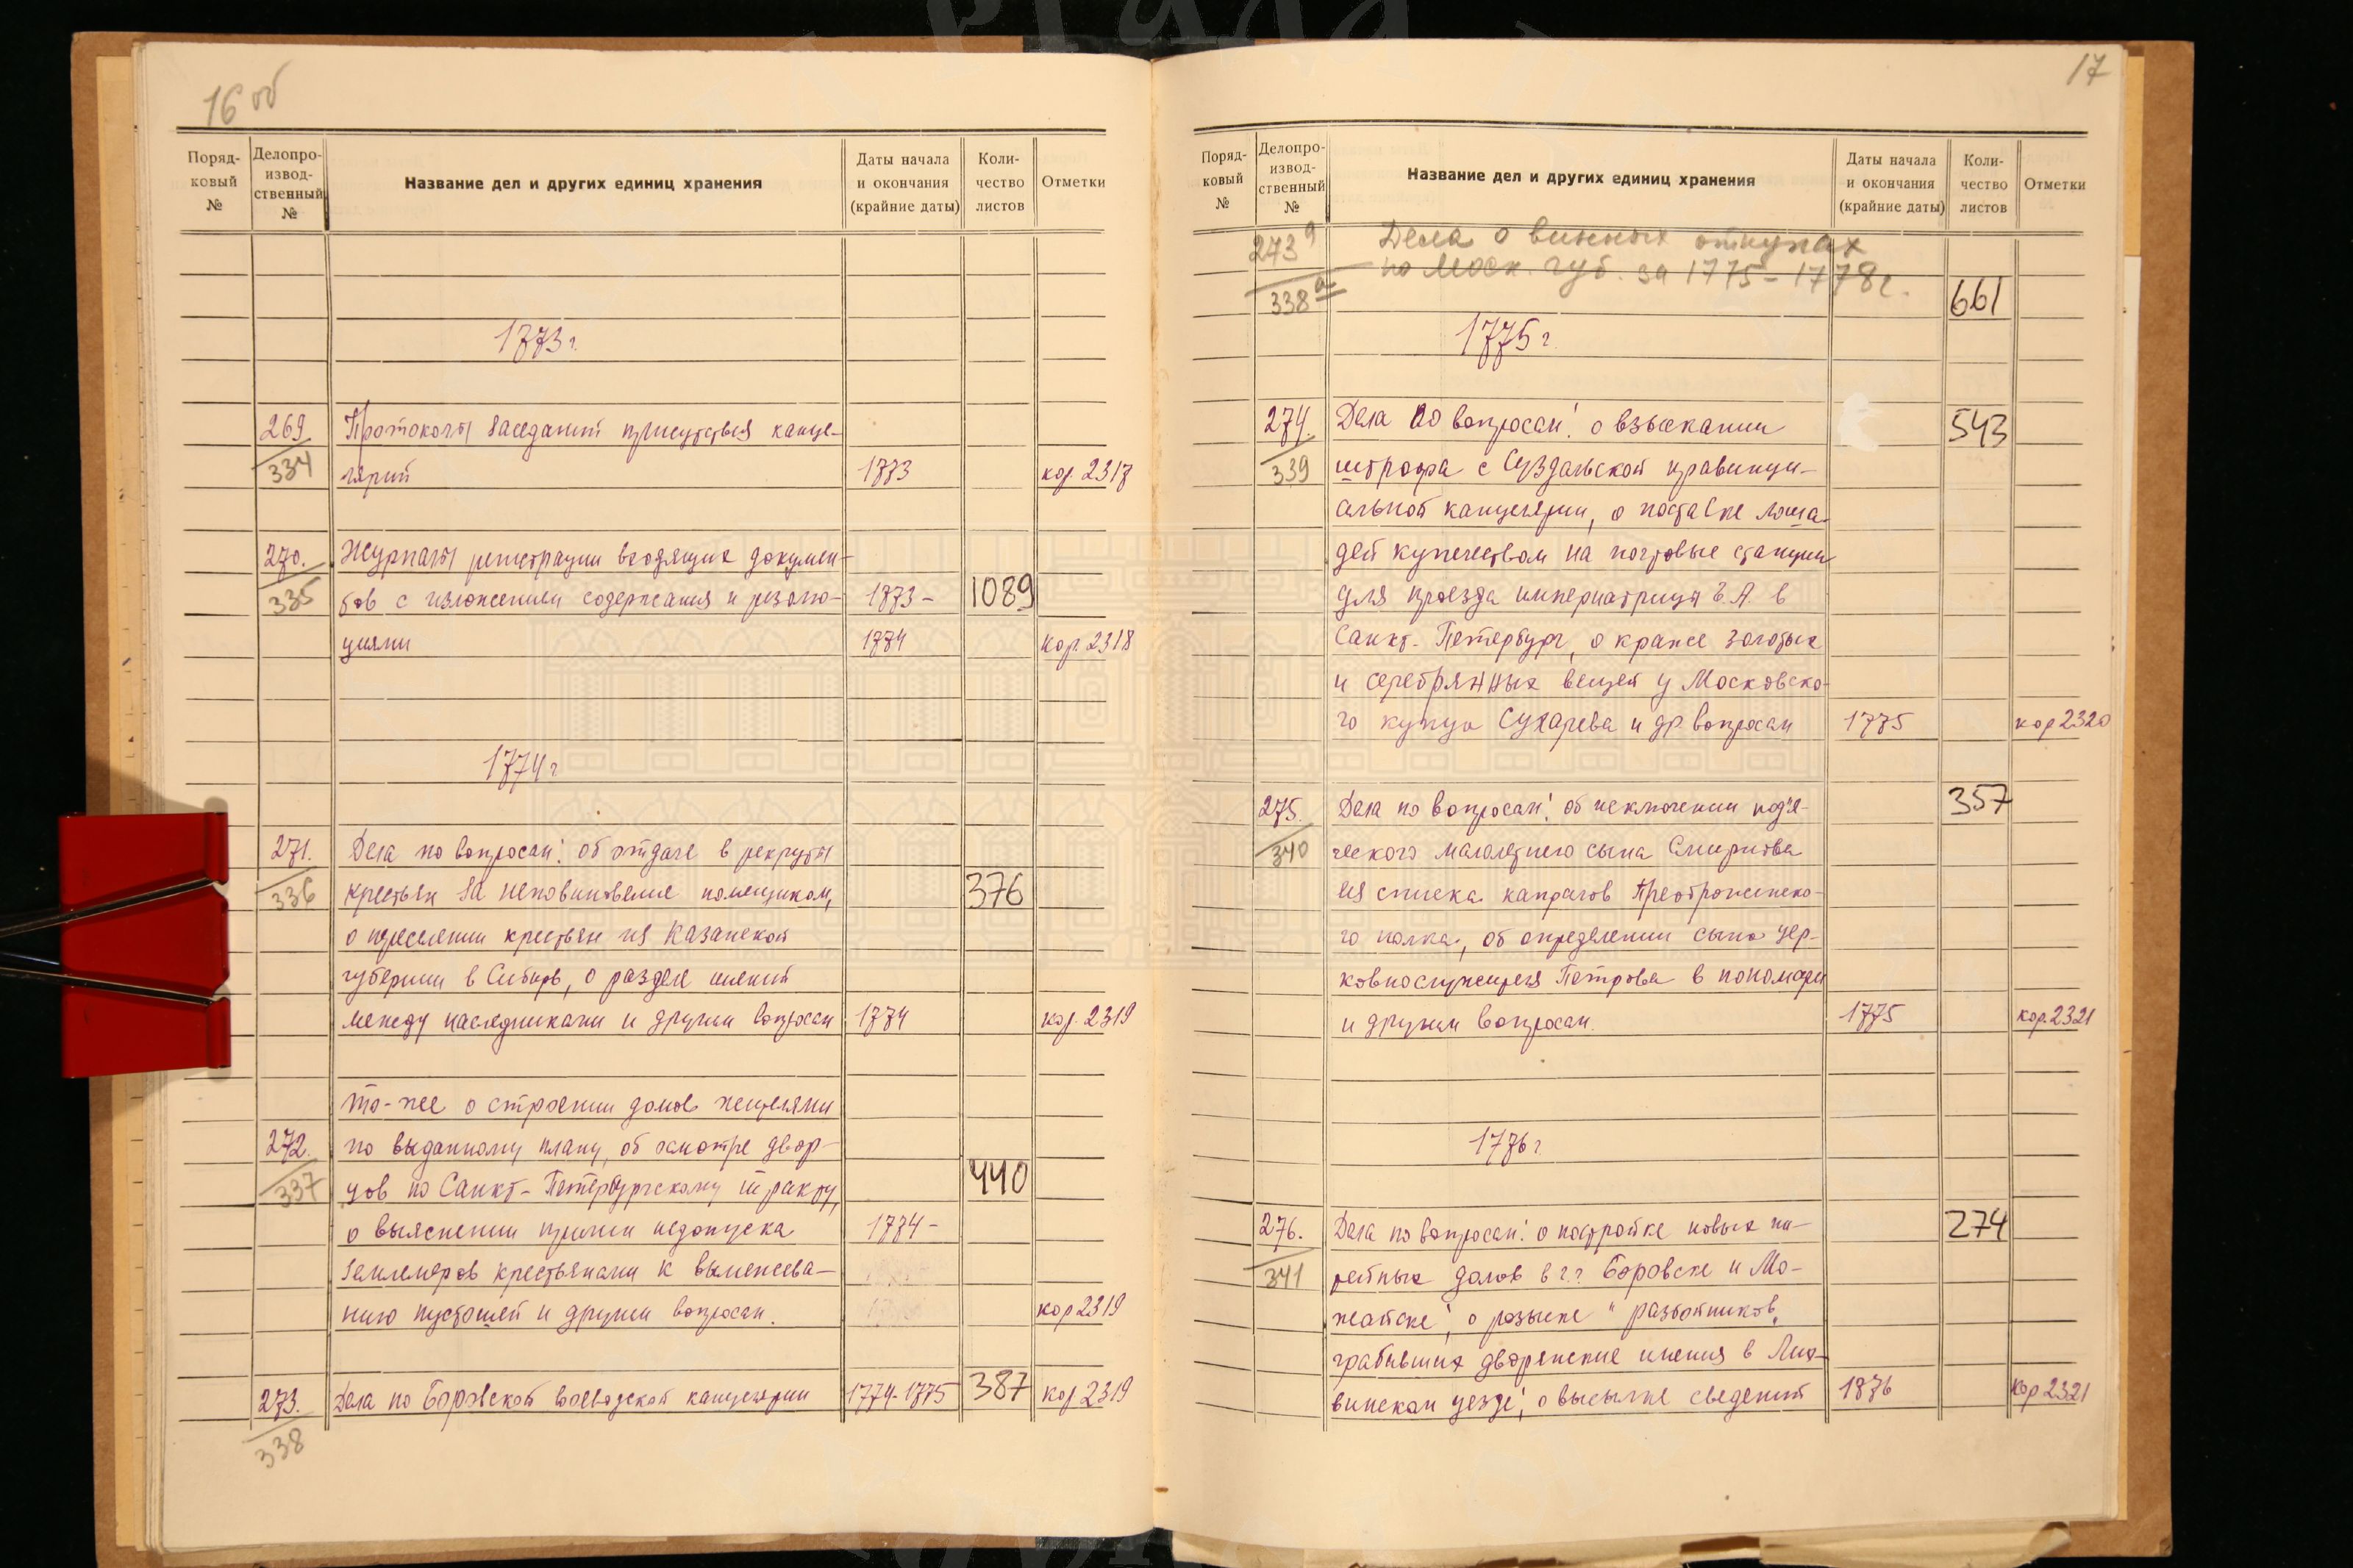 16 об
Поряд-
ковый
№
Делопро-
извод-
ственный
№
Название дел и других единиц хранения
Даты начала
и окончания
(крайние даты)
Коли-
чество
листов
Отметки
1773 г.
269. Протоколы заседаний присутствия канце-
334 лярий 1773 кор. 2317
270. Журналы регистрации входящих докумен-
335 тов с изложением содержания и резолю- 1773 – 1089
циями 1774 кор. 2318
1774 г
271. Дела по вопросам: об отдаче в рекруты
336 крестьян за неповиновение помещикам, 376
о переселении крестьян из Казанской
губернии в Сибирь, о разделе имений
между наследниками и другим вопросам 1774 кор. 2319
то-же о строении домов жителями
272. по выданному плану, об осмотре двор-
337 цов по Санкт-Петербургскому тракту, 440
о выяснении причин недопуска 1774 –
землемеров крестьянами к вымежева-
нию пустошей и другим вопросам. кор 2319
273. Дела по Боровской воеводской канцелярии 1774-1775 387 кор 2319
338
17
Поряд-
ковый
№
Делопро-
извод-
ственный
№
Название дел и других единиц хранения
Даты начала
и окончания
(крайние даты)
Коли-
чество
листов
Отметки
273а Дела о винных откупах
по Моск. губ. за 1775 – 1778 г.
338а 661
1775 г.
274. Дела по вопросам: о взыскании 543
339 штрафа с Суздальской правинци-
альной канцелярии, о поставке лоша-
дей купечеством на почтовые станции
для проезда императрицы Е.А. в
Санкт-Петербург, о краже золотых
и серебрянных вещей у Московско-
го купца Сухарева и др вопросам 1775 кор 2320
275. Дела по вопросам: об исключении под'я- 357
340 ческого малолетнего сына Смирнова
из списка капралов Преображенско-
го полка, об определении сына цер-
ковнослужителя Петрова в пономари
и другим вопросам. 1775 кор. 2321
1776 г.
276. Дела по вопросам: о постройке новых пи- 274
341 тейных домов в г.г. Боровске и Мо-
жайске; о розыске "разбойников"
грабивших дворянские имения в Лих-
винском уезде; о высылке сведений 1776 кор 2321